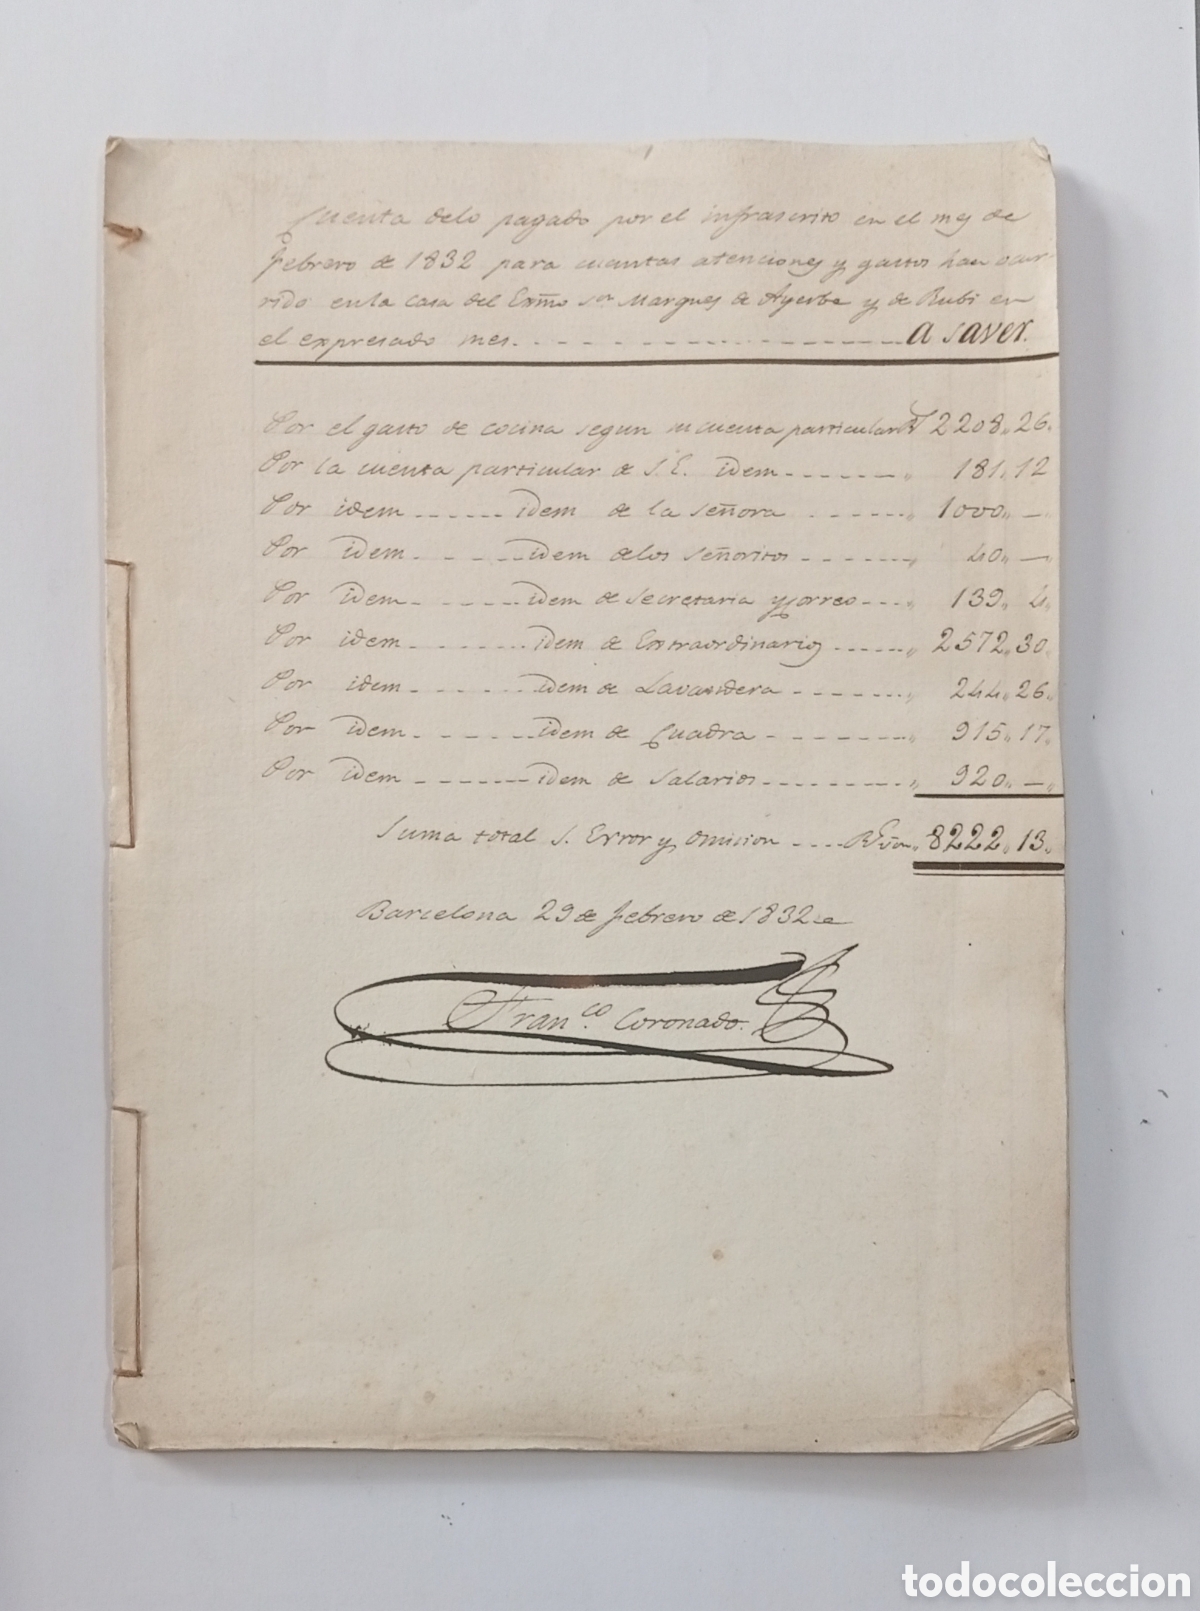 Cuenta delo pagado por el infrascrito en el mes de
Febrero de 1832 para cuantas atenciones y gastos han ocur-
rido en la casa del Exmo Sor Marques de Ayerbe y de Rubi en
el expresado mes. - - - - - - - - - - - - - - - A saver.
Por el gasto de cocina segun su cuenta particular Rs 2208,, 26,,
Por la cuenta particular de S.E. idem - - - - - - ,, 181,, 12
Por idem - - - - - - idem de la señora - - - - - - ,, 1000,, —,,
Por idem - - - - - - idem delos señoritos - - - - - - ,, 40,, —,,
Por idem - - - - - - idem de Secretaria y Correo - - - ,, 139,, 4,,
Por idem - - - - - - idem de Extraordinarios - - - - - ,, 2572,, 30,,
Por idem - - - - - - idem de Lavandera - - - - - - ,, 244,, 26,,
Por idem - - - - - - idem de Cuadra - - - - - - - ,, 915,, 17,,
Por idem - - - - - - idem de Salarios - - - - - - - ,, 920,, —,,
Suma total S. Error y omision - - - - Rs von,, 8222,, 13,,
Barcelona 29 de Febrero de 1832
Franco. Coronado.
todocoleccion